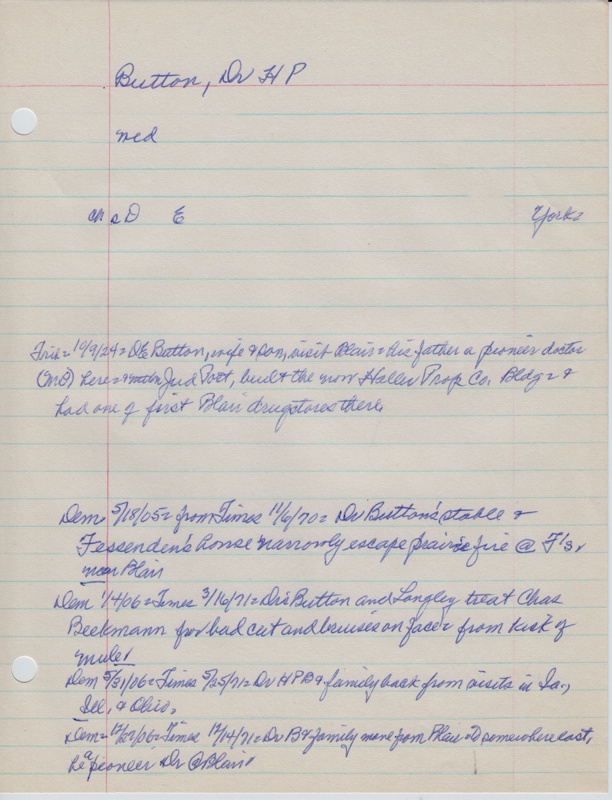 Button, Dr H P
med
D E York
Trib = 10/9/24 = DE Button, wife & son, visit Blair = his father a pioneer doctor
(MD) here = Jud Post, built the now Haller Prop Co. Bldg = &
had one of first Blair drugstores there.
Dem 5/18/05 = from Times 11/6/70 = Dr Button's stable &
Fessenden's house narrowly escape prairie fire @ F's,
near Blair
Dem 1/4/06 = Times 3/16/71 = Drs Button and Longley treat Chas
Beekmann for bad cut and bruises on face = from kick of
mule.
Dem 5/31/06 = Times 5/25/71 = Dr H P B & family back from visits in Ia.,
Ill, & Ohio.
Dem = 12/27/06 = Times 12/14/71 = Dr B & family move from Blair = to somewhere east,
he "a pioneer Dr @ Blair"